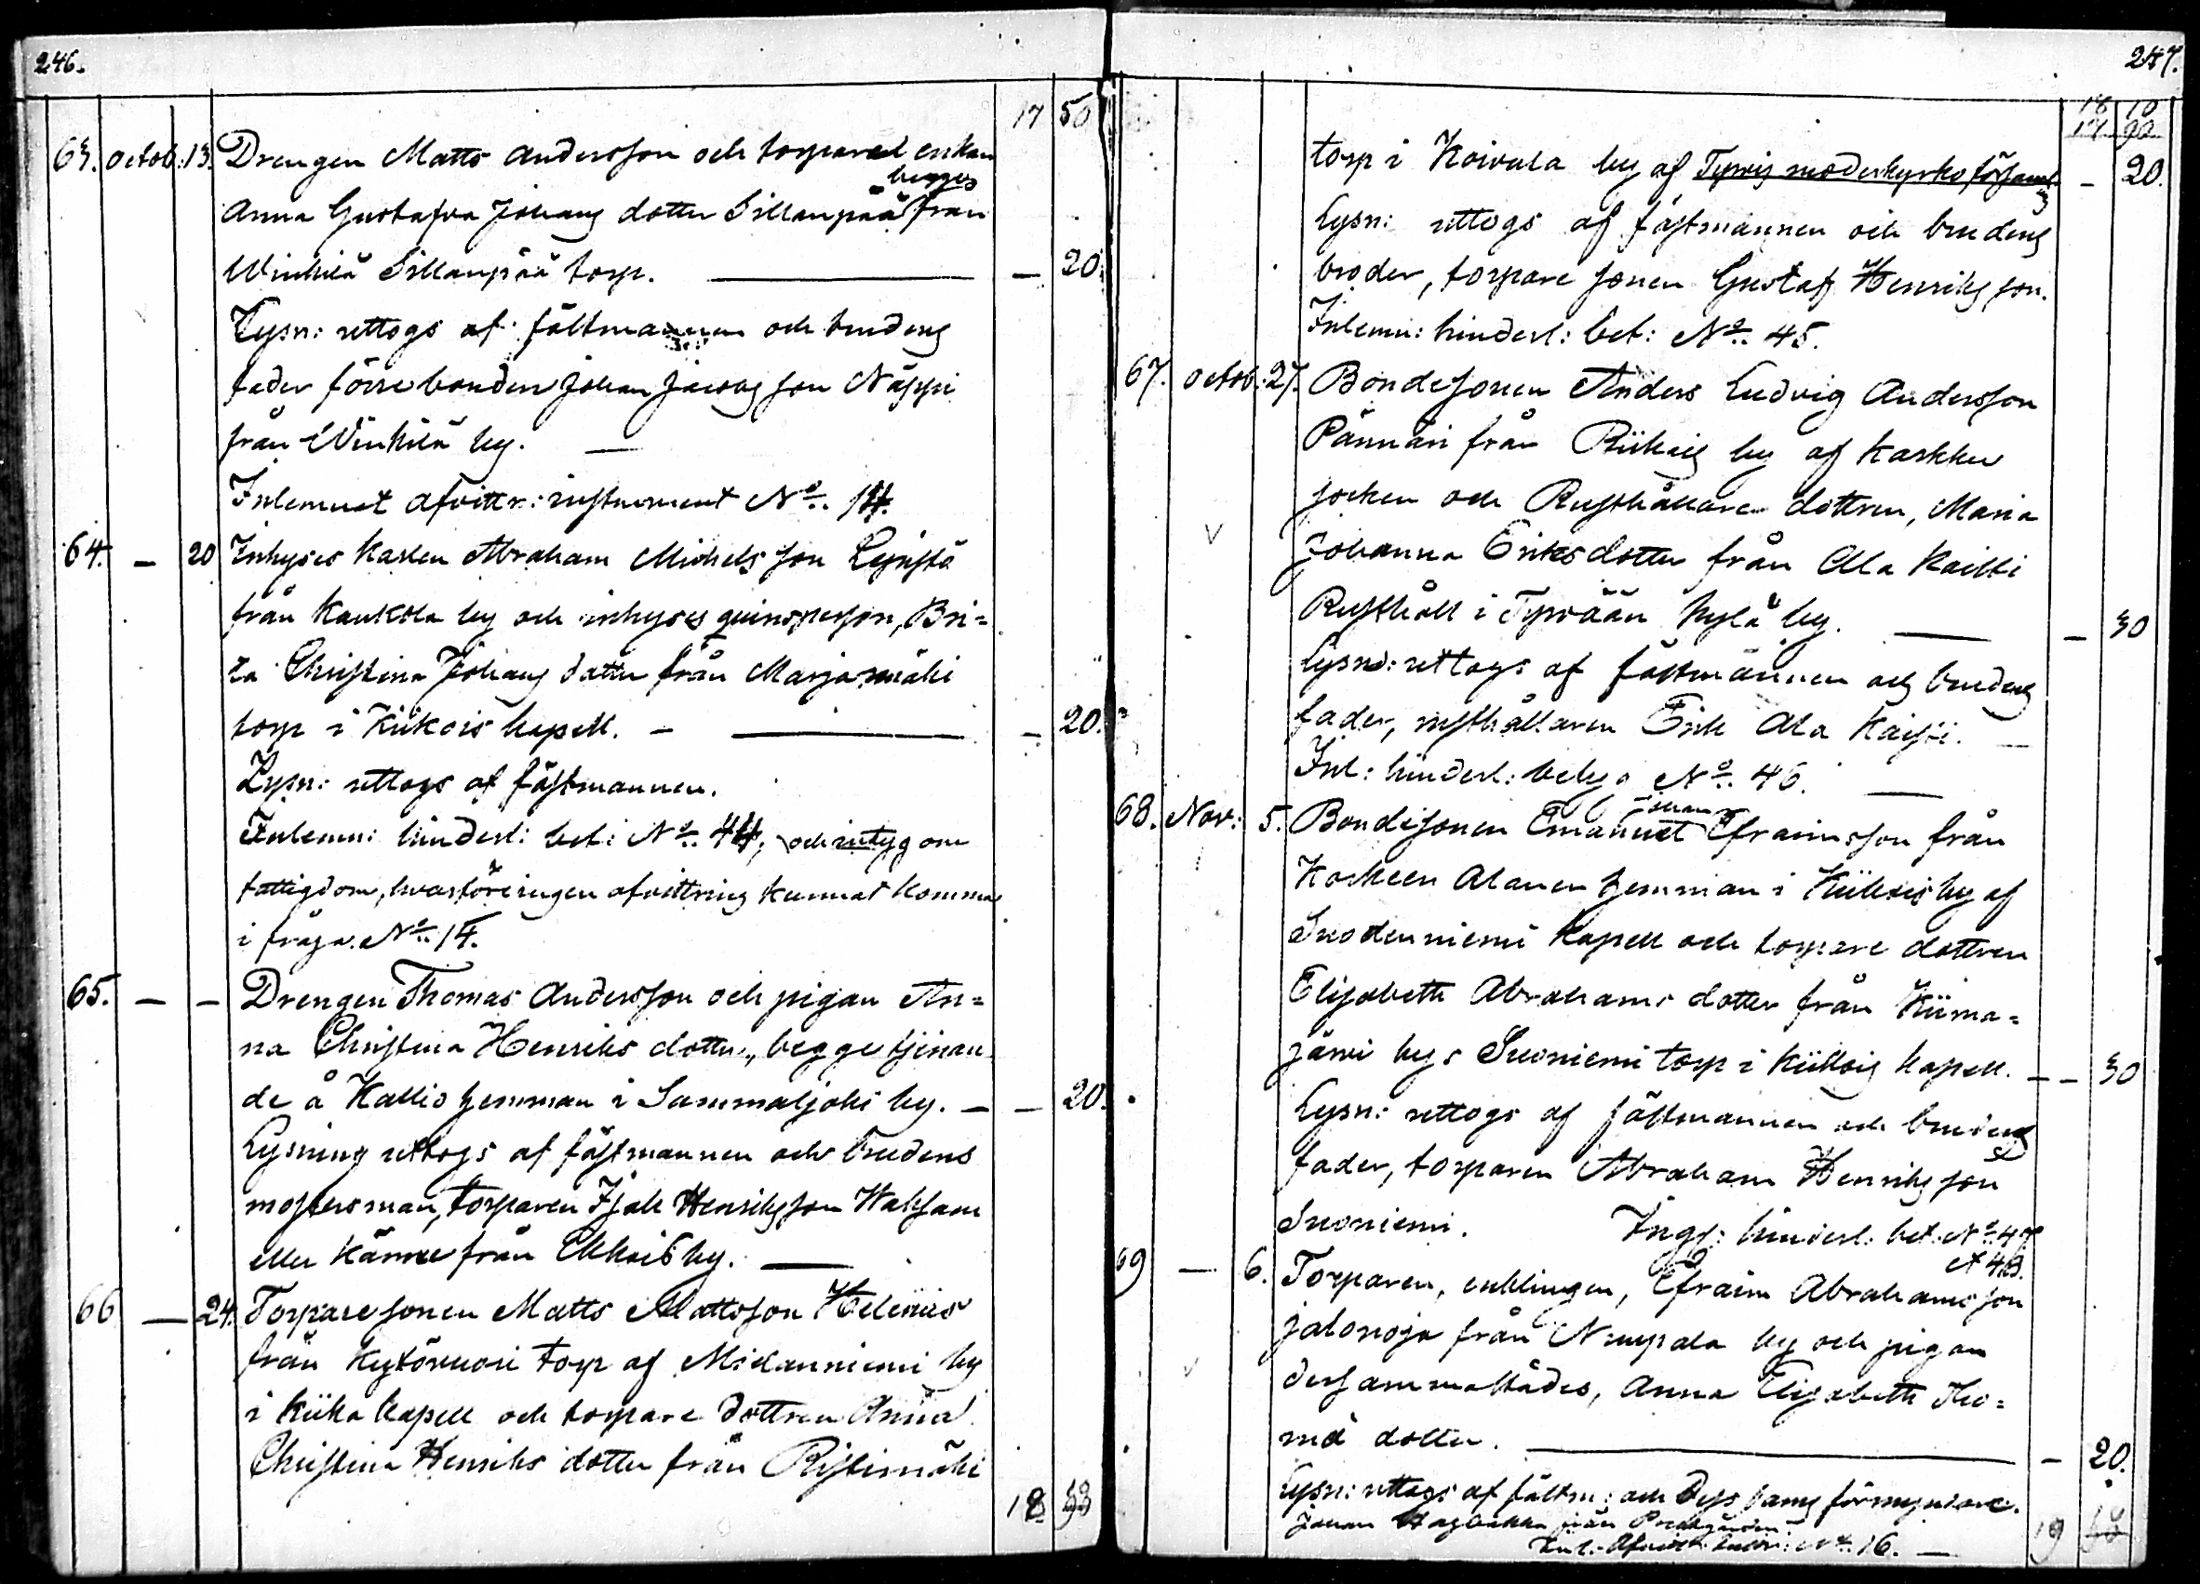 246.
17 50
63. Octob: 13. Drengen Matts Andersson och torpared enkan
begges
Anna Gustafva Johans dotter Sillanpää från
Winkilä Sillanpää torp. — — 20.
Lysn: uttogs af fästmannen och brudens
fader förre bonden Johan Jacobs son Näppi
från Winkilä by. —
Inlemnat afvittr: instrument No. 14.
64. — 20 Inhyses karlen Abraham Michels son
från Kaukola by och inhyses qvinsperson, Bri=
ta Christina Johans dotter från Marjamäki
torp i Kiikois kapell. — — — 20.
Lysn: uttogs af fästmannen.
Inlemn: hinderl: bet: No. 44, och intyg om
fattigdom, hvarföre ingen afvittring kunnat komma
i fråga. No. 14.
65. — — Drengen Thomas Andersson och pigan An=
na Christina Henriks dotter, begge tjenan
de å Kallio hemman i Sammaljoki by. — — 20.
Lysning uttogs af fästmannen och brudens
mosters man, torparen Isak Henriksson Waksam
eller Kärne från Ekkois by. —
66 — 24. Torpare sonen Matts Mattsson Helenius
från Kytövuori torp af Midanniemi by
i Kiika kapell och torpare dottren Anna
Christina Henriks dotter från Ristimäki
18
247.
18 10
17 90
torp i Koivula by af Tyrvis moderkyrko församl. — 20.
Lysn: uttogs af fästmannen och brudens
broder, torpare sonen Gustaf Henriks son.
Inlemn: hinderl: bet: No. 45.
67. Octob: 27. Bondesonen Anders Ludvig Andersson
Pännäri från by af Karkku
socken och Rusthållare dottren, Maria
Johanna Eriks dotter från Ala Kaisti
Rusthåll i Tyrvään kylä by. — — 30
Lysn: uttogs af fästmannen och brudens
fader, rusthållaren Erik Ala Kaisti. —
Inl: hinderl: betyg No. 46. —
68. Nov: 5. Bondesonen Emanuel Efraimsson från
Johan
Koskeen Alanen hemman i Kiikois by af
Suodenniemi kapell och torpare dottren
Elisabeth Abrahams dotter från Kiima=
järvi bys Suoniemi torp i Kiikois kapell. — — 30
Lysn: uttogs af fästmannen och brudens
fader, torparen Abraham Henriks son
Suoniemi. Ingf: hinderl: bet. No. 47
& 48.
69 — 6. Torparen, enklingen, Efraim Abrahamsson
Jalonoja från Nuupala by och pigan
dersammastädes, Anna Elisabeth Tho=
mä dotter. — — 20.
Lysn: uttogs af fästm: och dess barns förmyndare.
Johan från Prestgården
Inl: No. 16. —
19